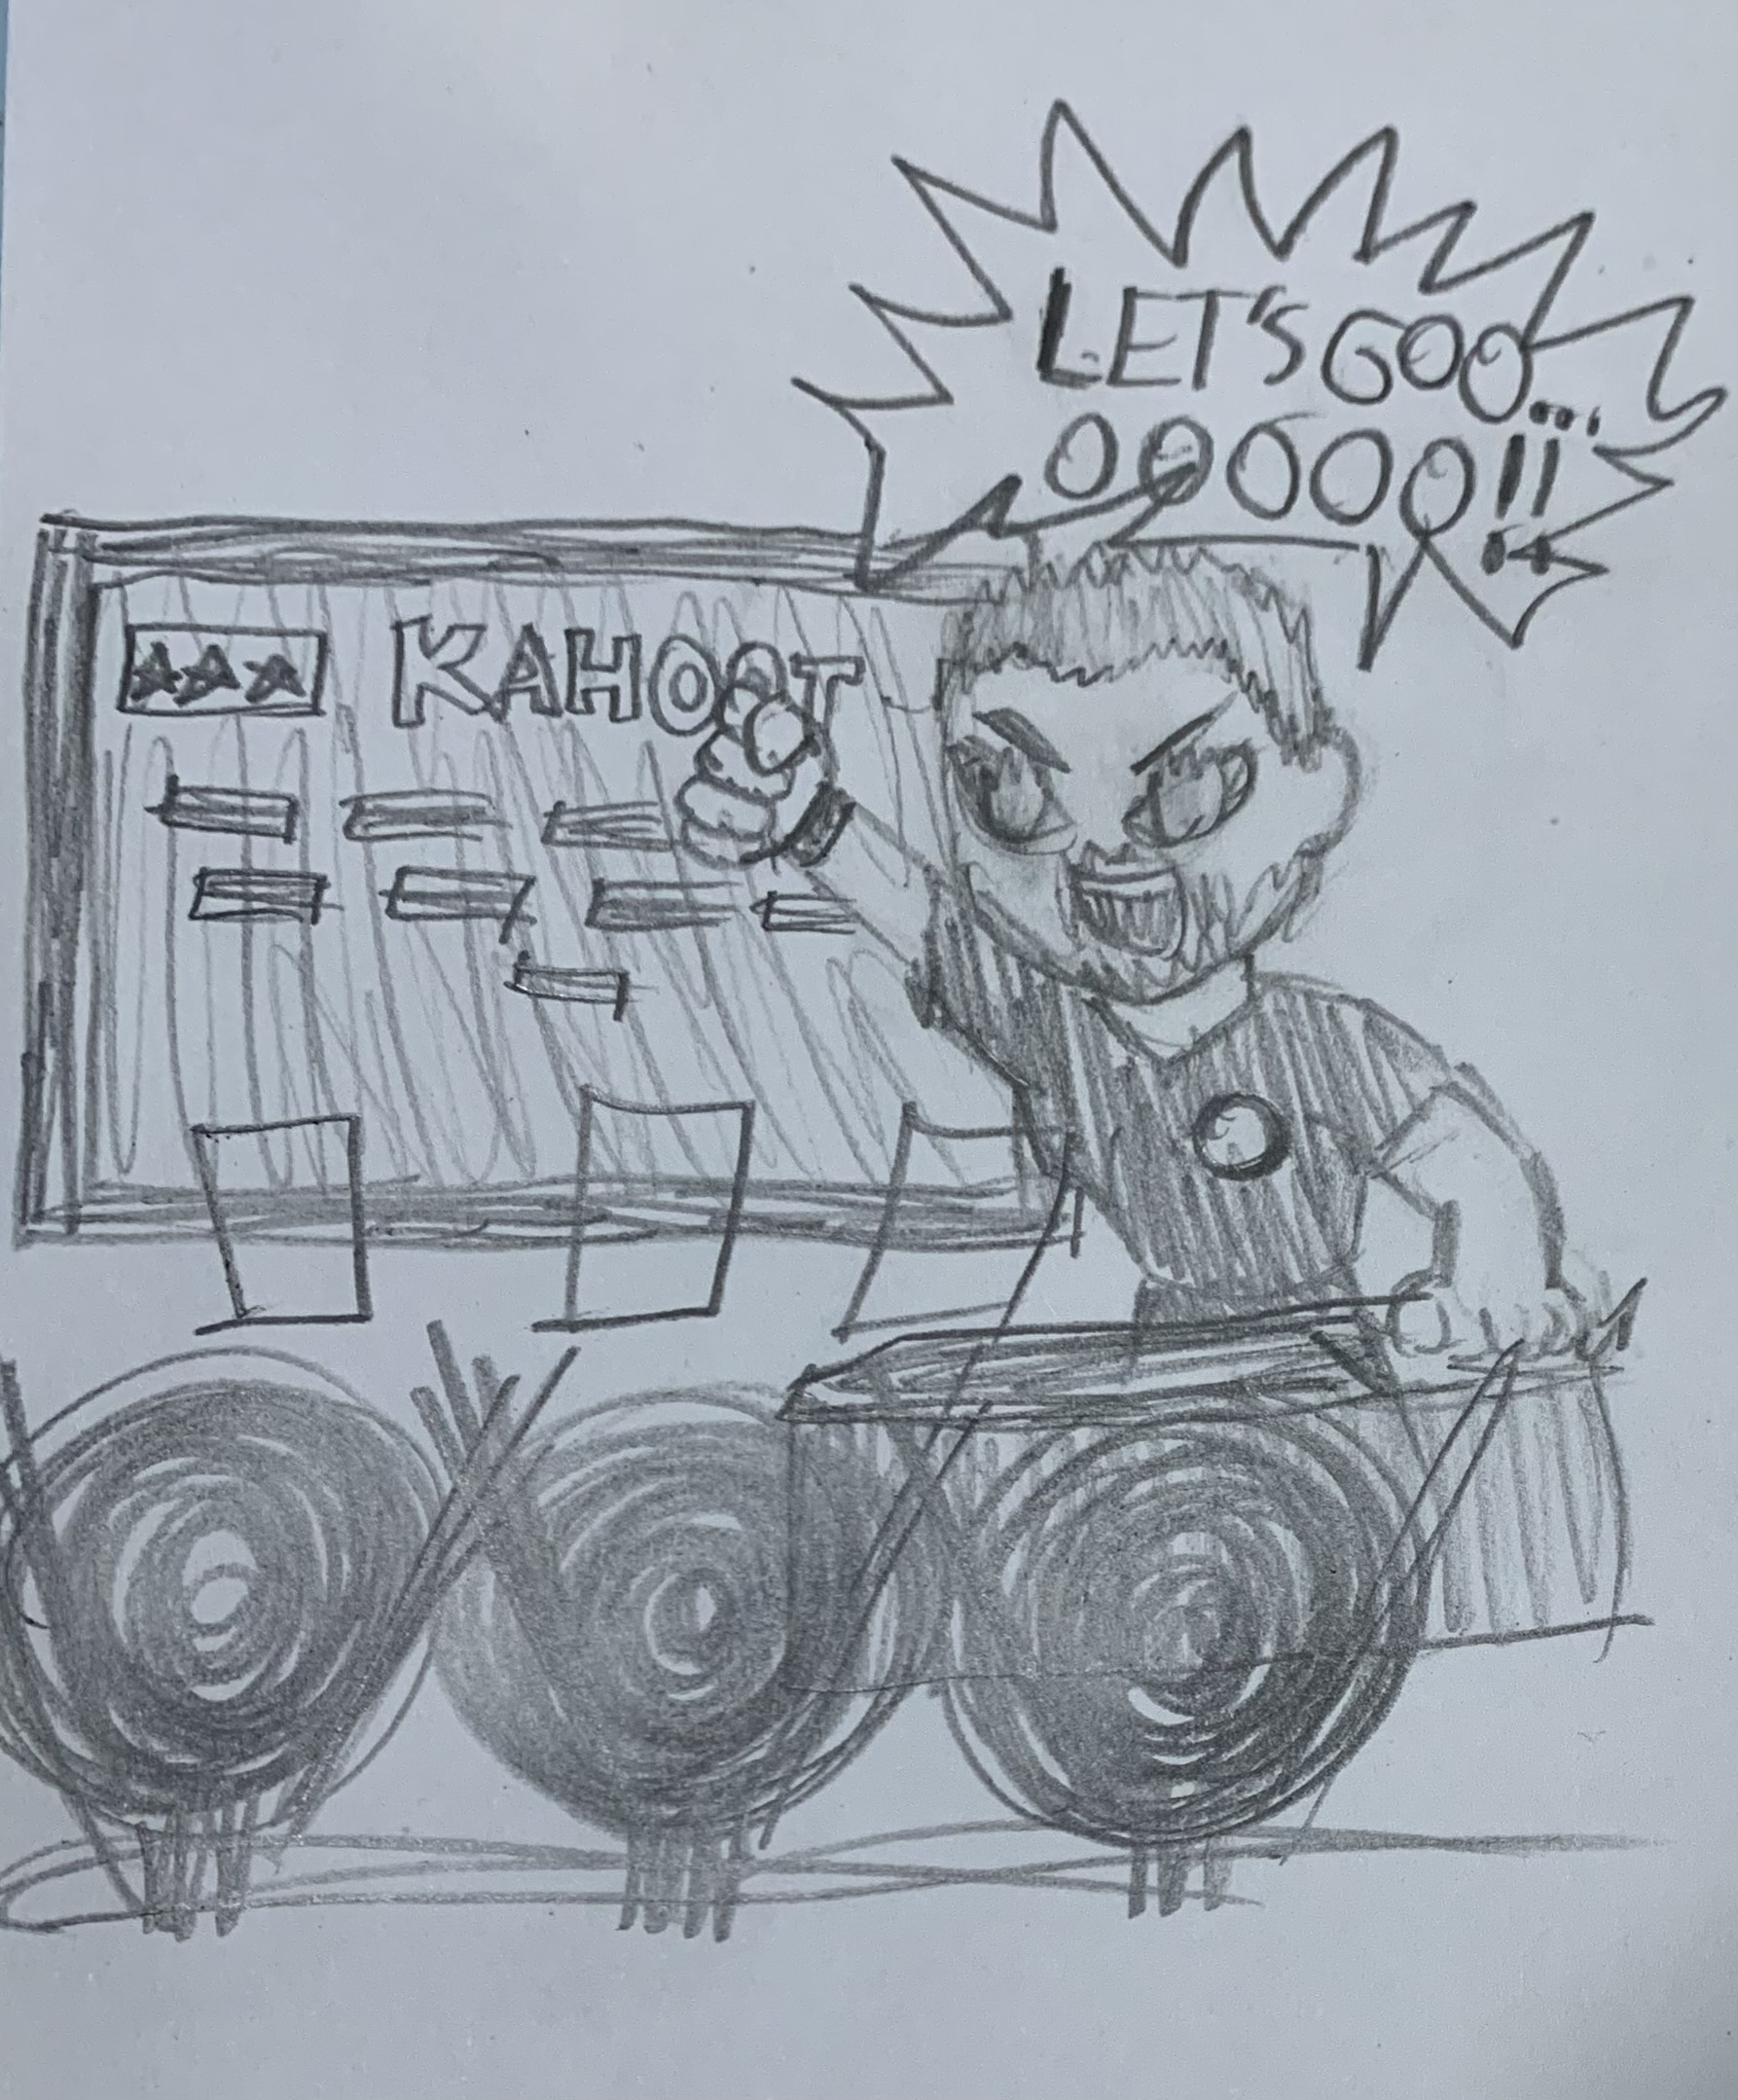 LET'S GOO...
OOOOO!!
KAHOOT